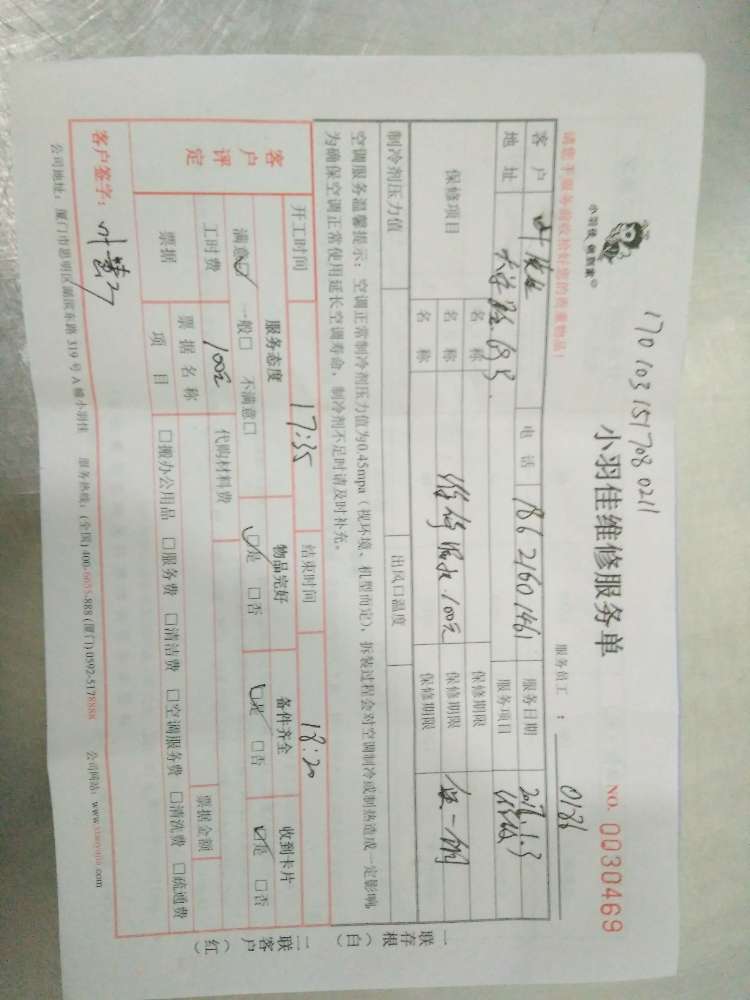 170103151708 0211
小羽佳维修服务单
NO. 0030469
请您于服务前收拾好您的贵重物品!
服务员工: 0186
客户 电话 18621601461 服务日期
地址 服务项目
保修项目 名称 保修期限
名称 100元 保修期限
名称 保修期限
制冷剂压力值 出风口温度
空调服务温馨提示:空调正常制冷剂压力值为0.45mpa(视环境、机型而定),拆装过程会对空调制冷或制热造成一定影响,
为确保空调正常使用延长空调寿命,制冷剂不足时请及时补充。
开工时间 17:35 结束时间 18:20
客户评定 服务态度 物品完好 备件齐全 收到卡片
满意☑ 一般□ 不满意□ ☑是 □否 ☑是 □否 ☑是 □否
工时费 100元 代购材料费
票据 票据名称 票据金额
项目 □搬办公用品 □服务费 □清洁费 □空调服务费 □清洗费 □疏通费
客户签字:
公司地址:厦门市思明区湖滨东路 319 号 A 幢小羽佳 服务热线:(全国)400-6675-888 (厦门)0592-5178888 公司网站:
一联存根(白)
二联客户(红)